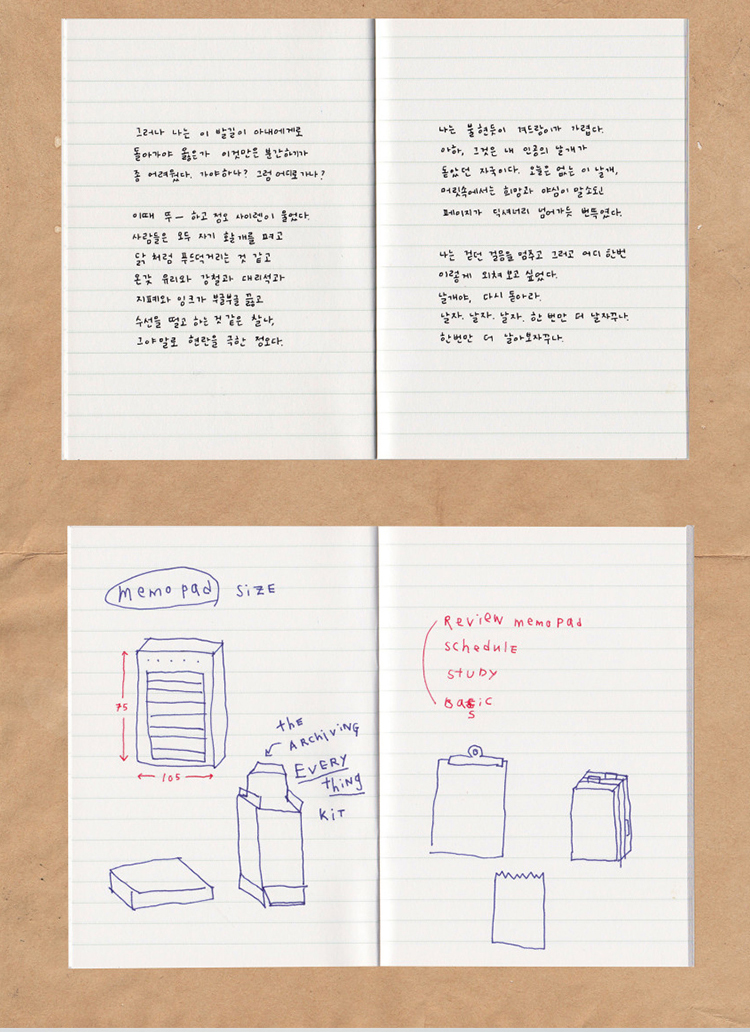 그러나 나는 이 발길이 아내에게로
돌아가야 옳은가 이것만은 분간하기가
좀 어려웠다. 가야하나? 그럼 어디로가나?
이때 뚜 — 하고 정오 사이렌이 울었다.
사람들은 모두 자기 활개를 펴고
닭 처럼 푸드덕거리는 것 같고
온갖 유리와 강철과 대리석과
지폐와 잉크가 부글부글 끓고
수선을 떨고 하는 것 같은 찰나,
그야말로 현란을 극한 정오다.
나는 불현듯이 겨드랑이가 가렵다.
아하, 그것은 내 인공의 날개가
돋았던 자국이다. 오늘은 없는 이 날개,
머릿속에서는 희망과 야심이 말소된
페이지가 딕셔너리 넘어가듯 번뜩였다.
나는 걷던 걸음을 멈추고 그리고 어디 한번
이렇게 외쳐 보고 싶었다.
날개야, 다시 돋아라.
날자. 날자. 날자. 한 번만 더 날자꾸나.
한번만 더 날아보자꾸나.
memo pad SIZE
75
105
the
ARCHIVING
EVERY
thing
KIT
REVIEW memo pad
SCHEDULE
STUDY
BaSiC